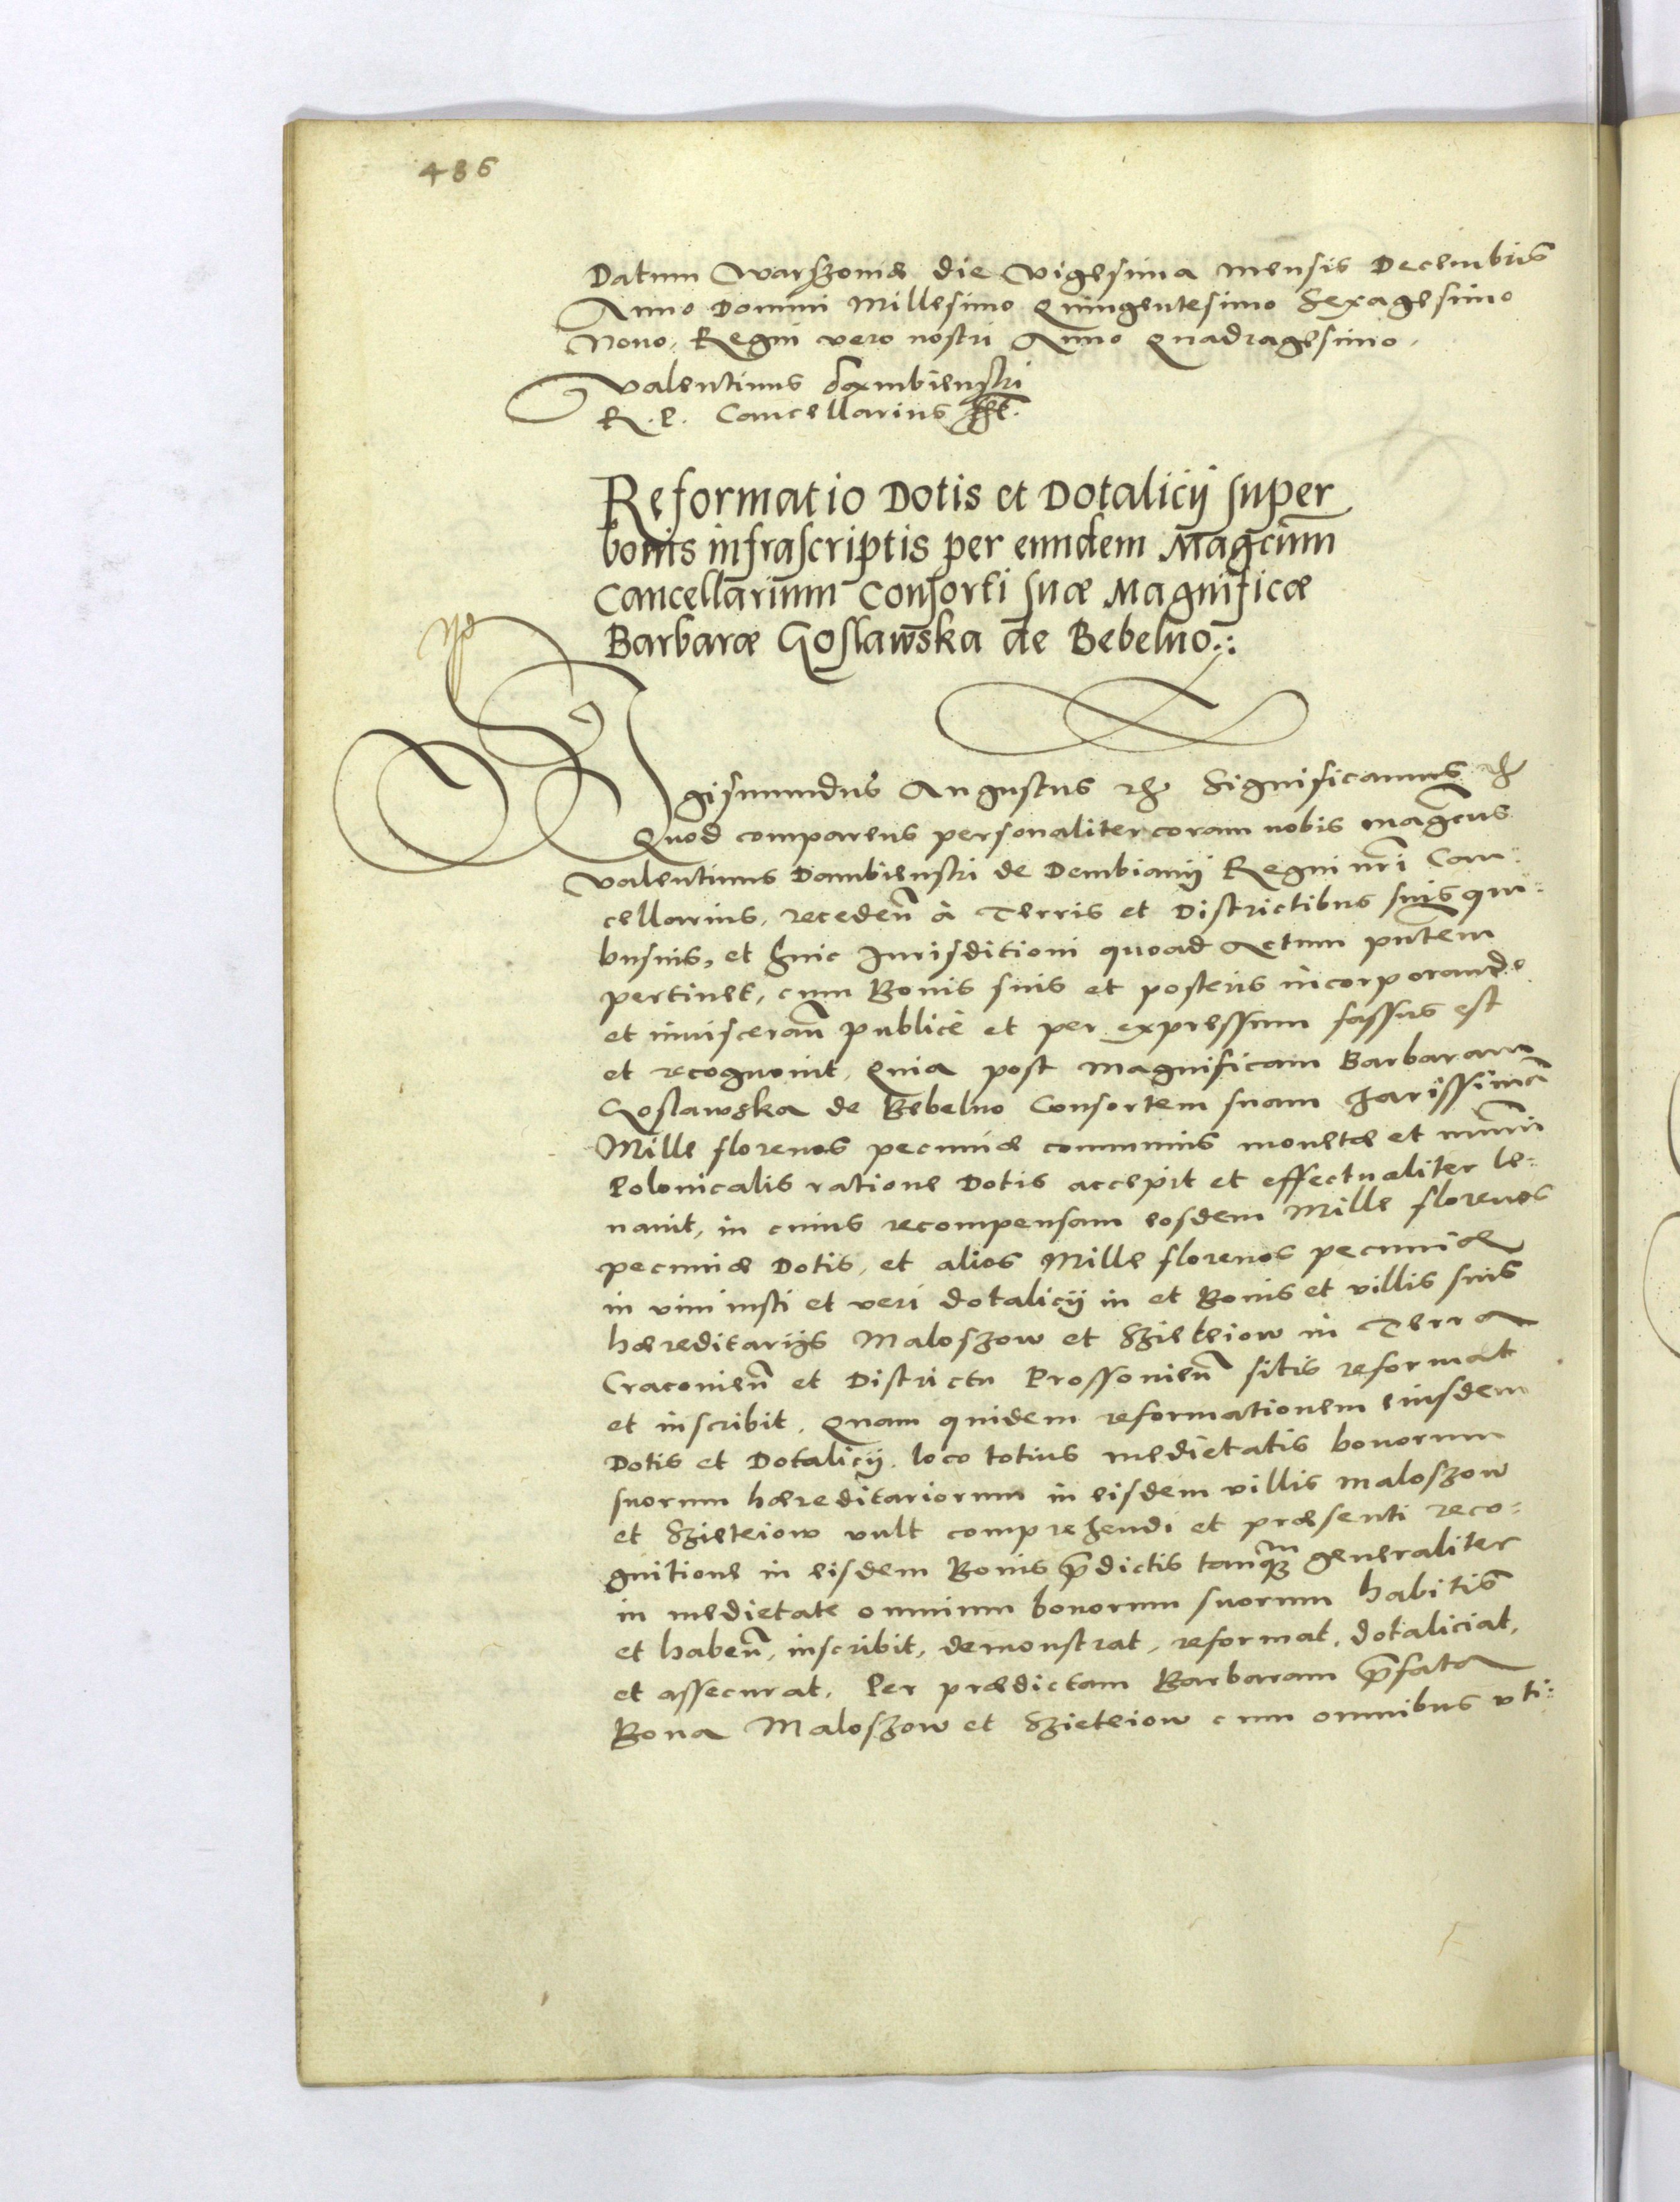 486
Datum Warszoviæ die vigesima mensis Decembris
Anno Domini Millesimo Quingentesimo Sexagesimo
Nono, Regni vero nostri Anno Quadragesimo.
Valentinus Dambienski
R. P. Cancellarius sst.
Reformatio Dotis et Dotalicij super
bonis infrascriptis per eundem Magcum
Cancellarium Consorti suæ Magnificæ
Barbaræ Goslawska de Bebelno
Sigismundus Augustus etc. Significamus etc.
Quod comparens personaliter coram nobis Magcus
Valentinus Dambienski de Dembianij Regni nri Can:
cellarius, recedeñ à Terris et Districtibus suis qui:
busuis, et huic Jurisditioni quoad actum pñtem
pertinet, cum Bonis suis et posteris incorporande
et inuiscerañ publicè et per expressum fassus est
et recognouit, Quia post Magnificam Barbaram
Goslawska de Bebelno Consortem suam charissimã
Mille florenos pecuniæ communis monetæ et numeri
Polonicalis ratione Dotis accepit et effectualiter le:
uauit, in cuius recompensam eosdem Mille florenos
pecuniæ Dotis, et alios Mille florenos pecuniæ
in vim iusti et veri dotalicij in et Bonis et villis suis
hæreditarijs Maloszow et Szieteiow in Terra
Cracovieñ et Districtu Prossovieñ sitis reformat
et inscribit. Quam quidem reformationem eiusdem
Dotis et Dotalicij loco totius medietatis bonorum
suorum hæreditariorum in eisdem villis Maloszow
et Szieteiow vult comprehendi et præsenti reco:
gnitione in eisdem Bonis p̃dictis tanq̃ȝ generaliter
in medietate omnium bonorum suorum habitis
et habeñ, inscribit, demonstrat, reformat, dotaliciat,
et assecurat. Per prædictam Barbaram p̃fata
Bona Maloszow et Szieteiow cum omnibus vti: